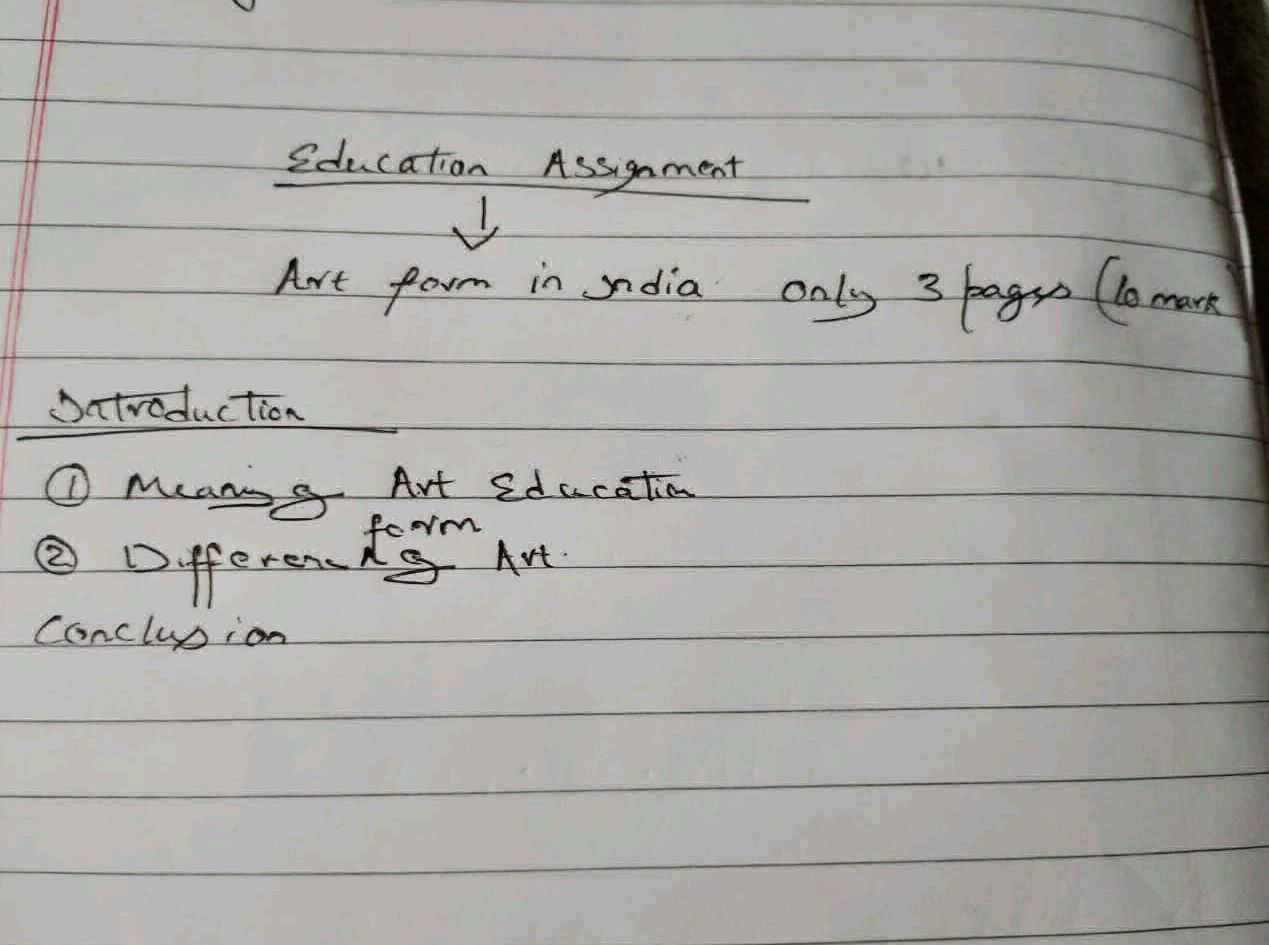 Education Assignment
Art form in India only 3 pages (10 mark
Introduction
① Meaning of Art Education
form
② Different of Art.
Conclusion